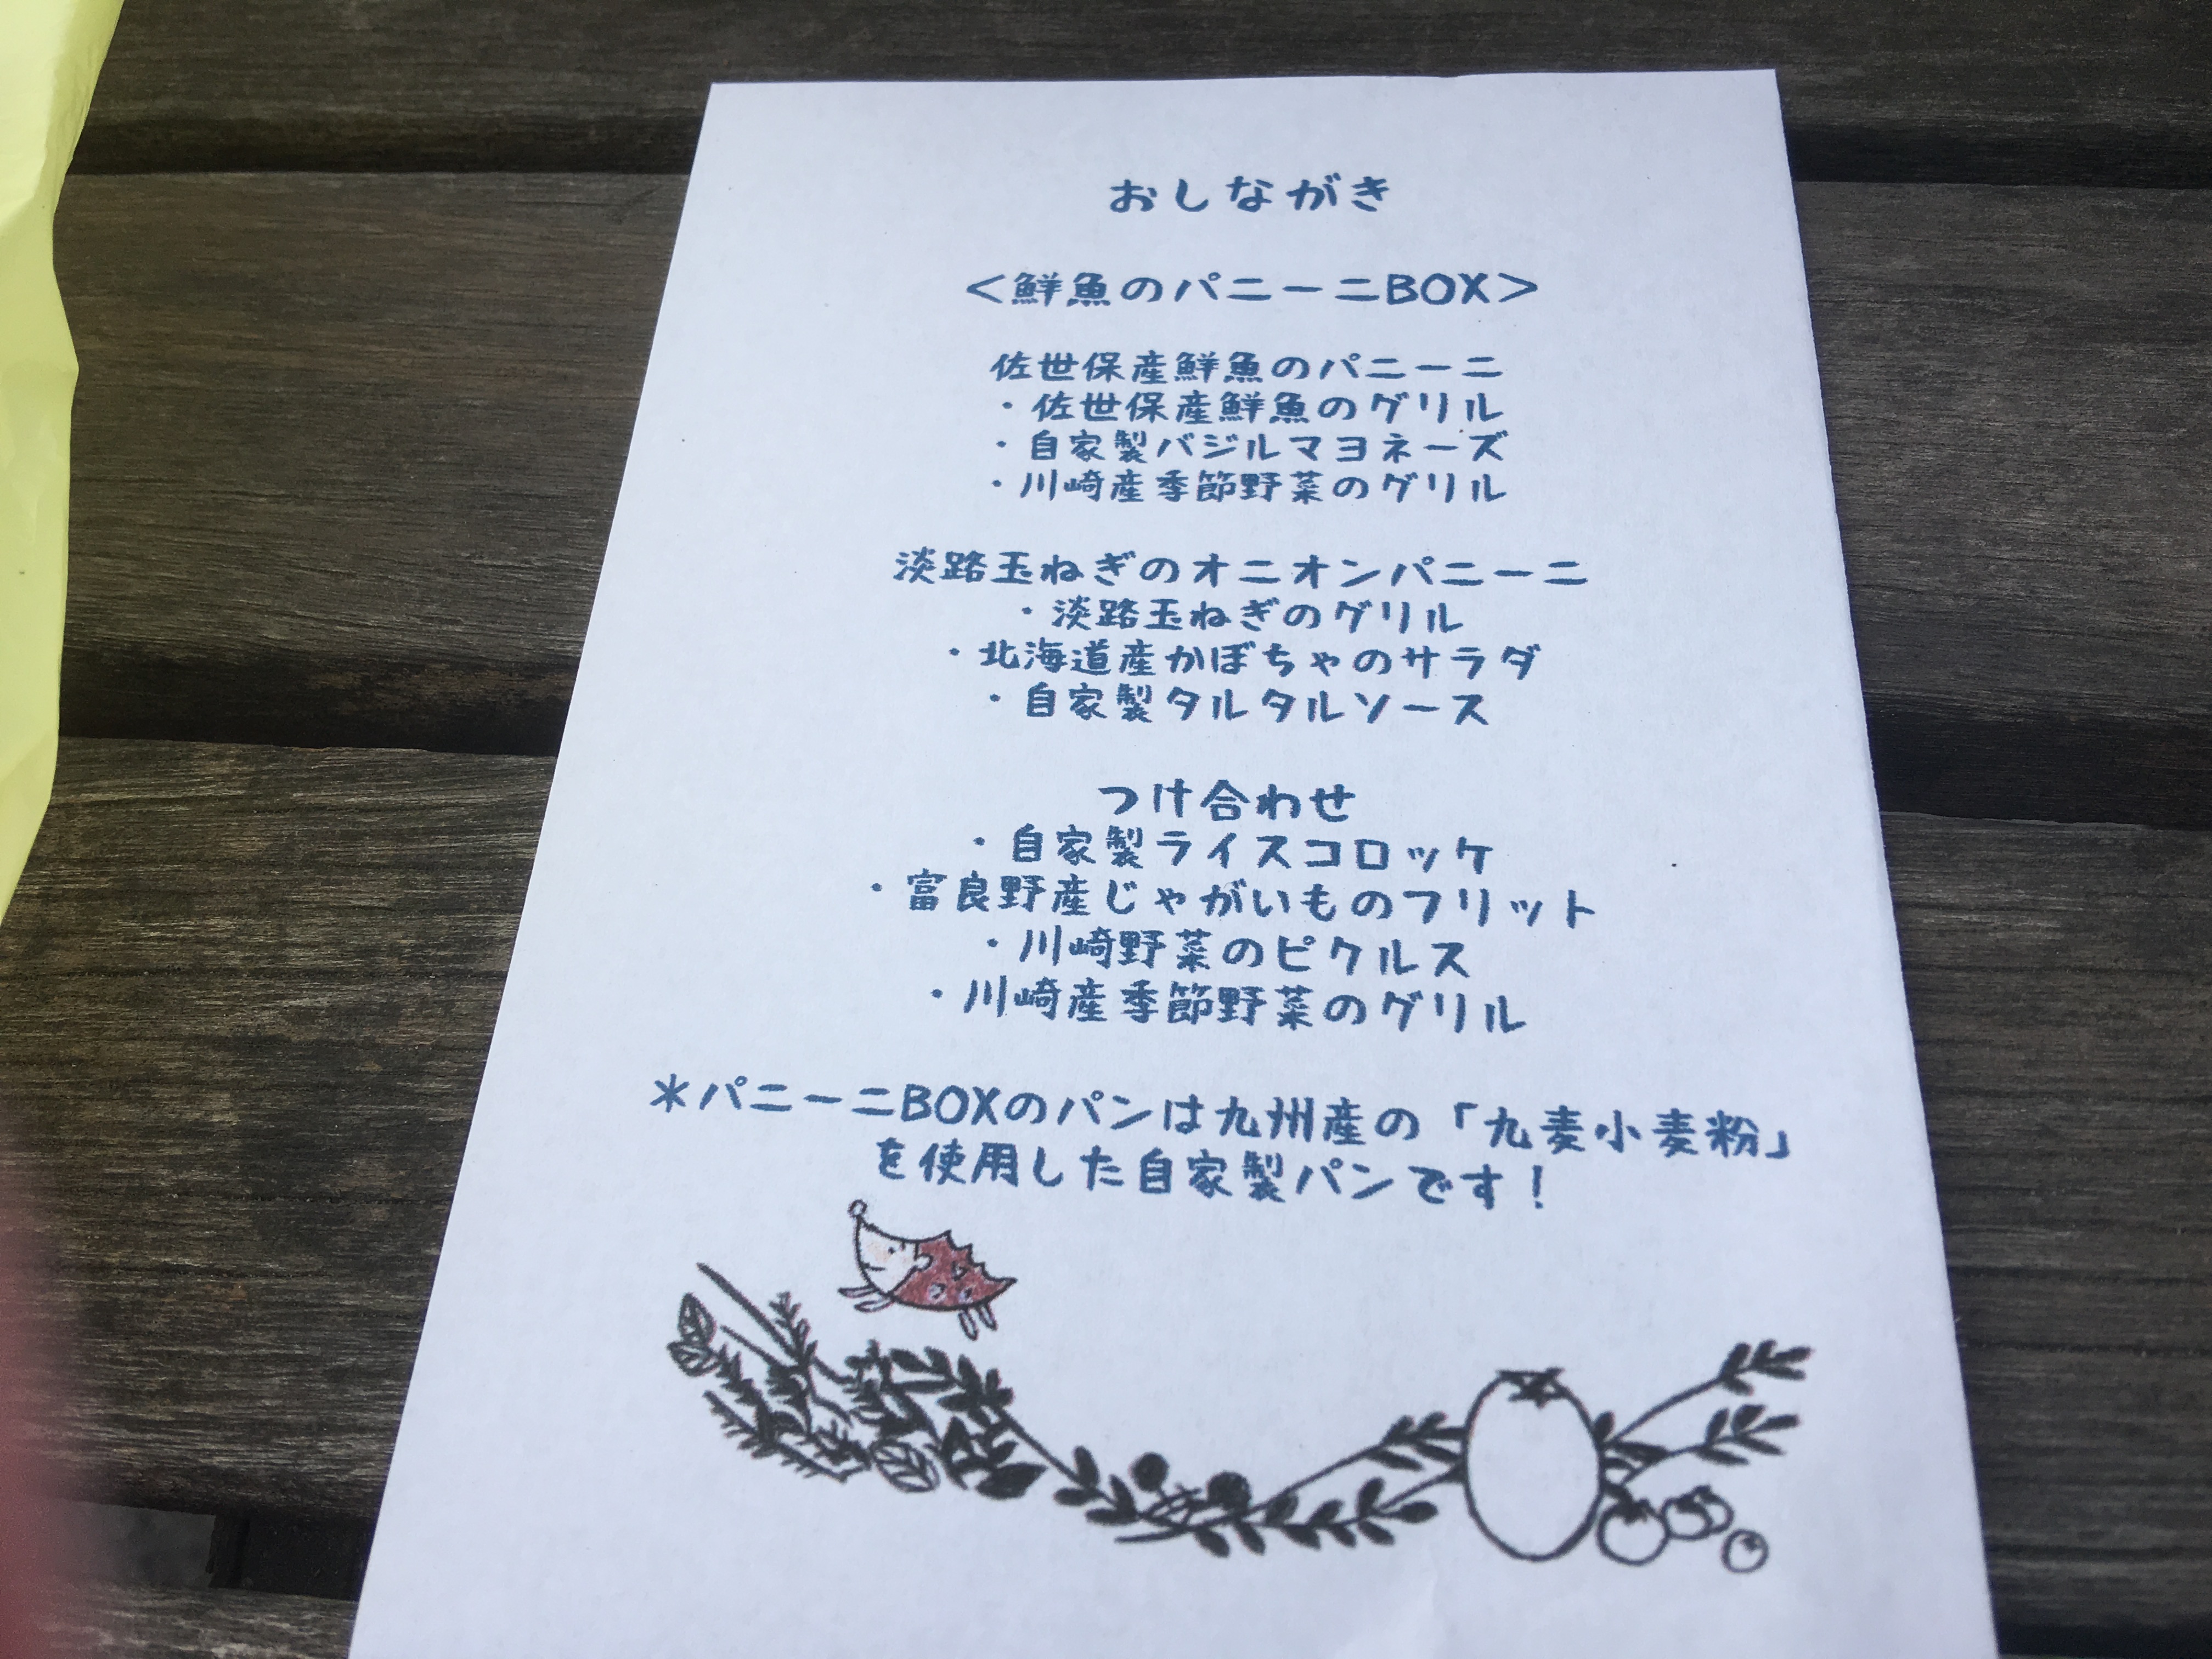 おしながき
＜鮮魚のパニーニBOX＞
佐世保産鮮魚のパニーニ
・佐世保産鮮魚のグリル
・自家製バジルマヨネーズ
・川崎産季節野菜のグリル
淡路玉ねぎのオニオンパニーニ
・淡路玉ねぎのグリル
・北海道産かぼちゃのサラダ
・自家製タルタルソース
つけ合わせ
・自家製ライスコロッケ
・富良野産じゃがいものフリット
・川崎野菜のピクルス
・川崎産季節野菜のグリル
＊パニーニBOXのパンは九州産の「九麦小麦粉」
を使用した自家製パンです！